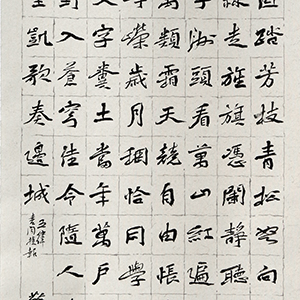 踏芳枝青松向
走旌旗憑闌靜聽
洲頭看萬山紅遍
萬類霜天競自由悵
嶸歲月稠恰同學
字糞土當年萬戶
入蒼穹佳令隨人
凱歌奏邊城
五律